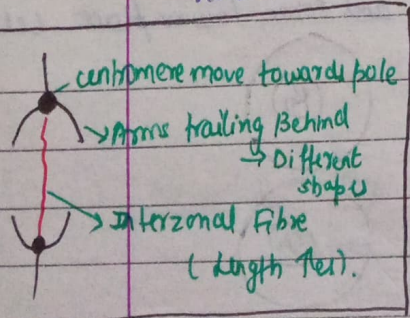 centromere move towards pole
→ Arms trailing Behind
→ Different
shapes
→ Interzonal Fibre
(Length ↑es).